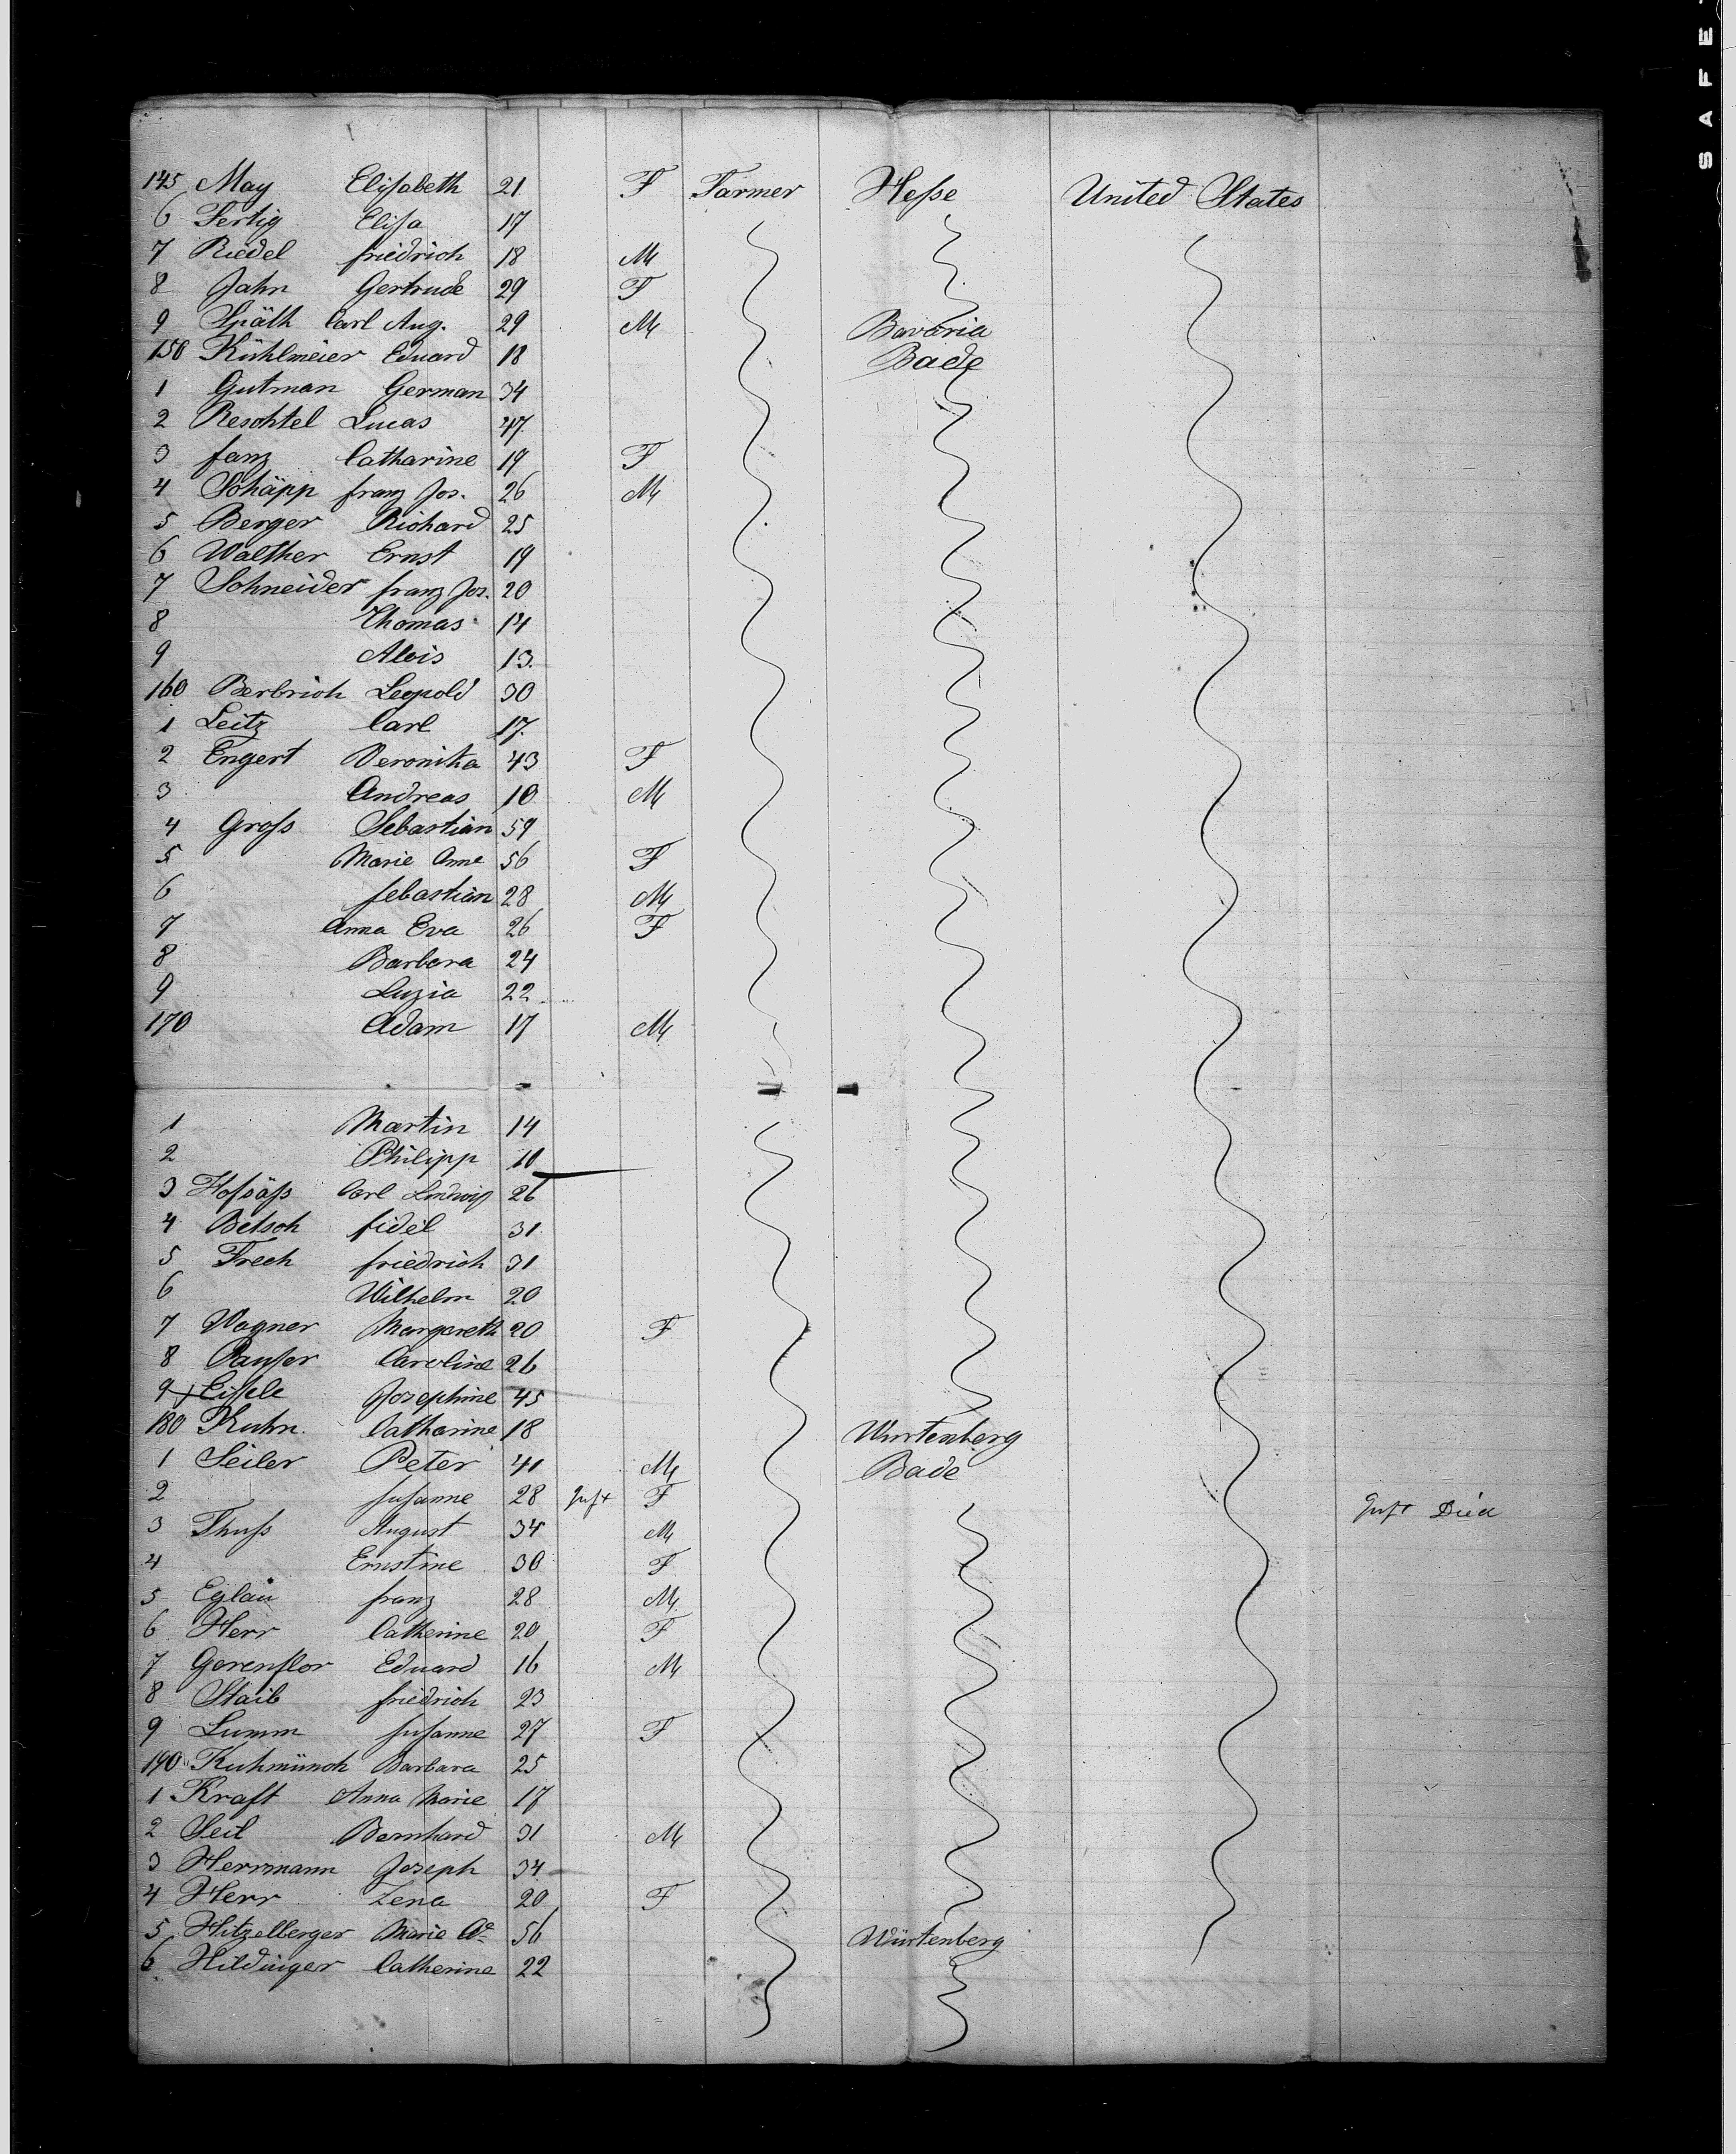 SAFE
145 May Elisabeth 21 F Farmer Hesse United States
6 Fertig Elisa 17
7 Riedel friedrich 18 M
8 Jahn Gertrude 29 F
9 Späth Carl Aug. 29 M Bavaria
150 Kühlmeier Eduard 18 Bade
1 Gutman German 34
2 Reschtel Lucas 47
3 fanz Catharine 19 F
4 Schäpp franz Jos. 26 M
5 Berger Richard 25
6 Walther Ernst 19
7 Schneider franz Jos. 20
8 Thomas 14
9 Alois 13
160 Berbrich Leopold 30
1 Leitz Carl 17
2 Engert Veronika 43 F
3 Andreas 10 M
4 Gross Sebastian 59
5 Marie Anne 56 F
6 sebastian 28 M
7 Anna Eva 26 F
8 Barbara 24
9 Luzia 22
170 Adam 17 M
1 Martin 14
2 Philipp 10
3 Hofsäss Carl Ludwig 26
4 Betsch fidel 31
5 Frech friedrich 31
6 Wilhelm 20
7 Wagner Margareth 20 F
8 Panser Caroline 26
9 Eissele Josephine 45
180 Kuhn Catharine 18 Wurtenberg
1 Seiler Peter 41 M Bade
2 susanne 28 F Died
3 Thuss August 34 M
4 Ernstine 30 F
5 Eglau franz 28 M
6 Herr Catherine 20 F
7 Gerenflor Eduard 16 M
8 Staib friedrich 23
9 Lumm susanne 27 F
190 Kuhmünch Barbara 25
1 Kraft Anna Marie 17
2 Seil Bernhard 31 M
3 Herrmann Joseph 34
4 Herr Zena 20 F
5 Hitzelberger Marie Ae 56 Würtenberg
6 Hildinger Catherine 22